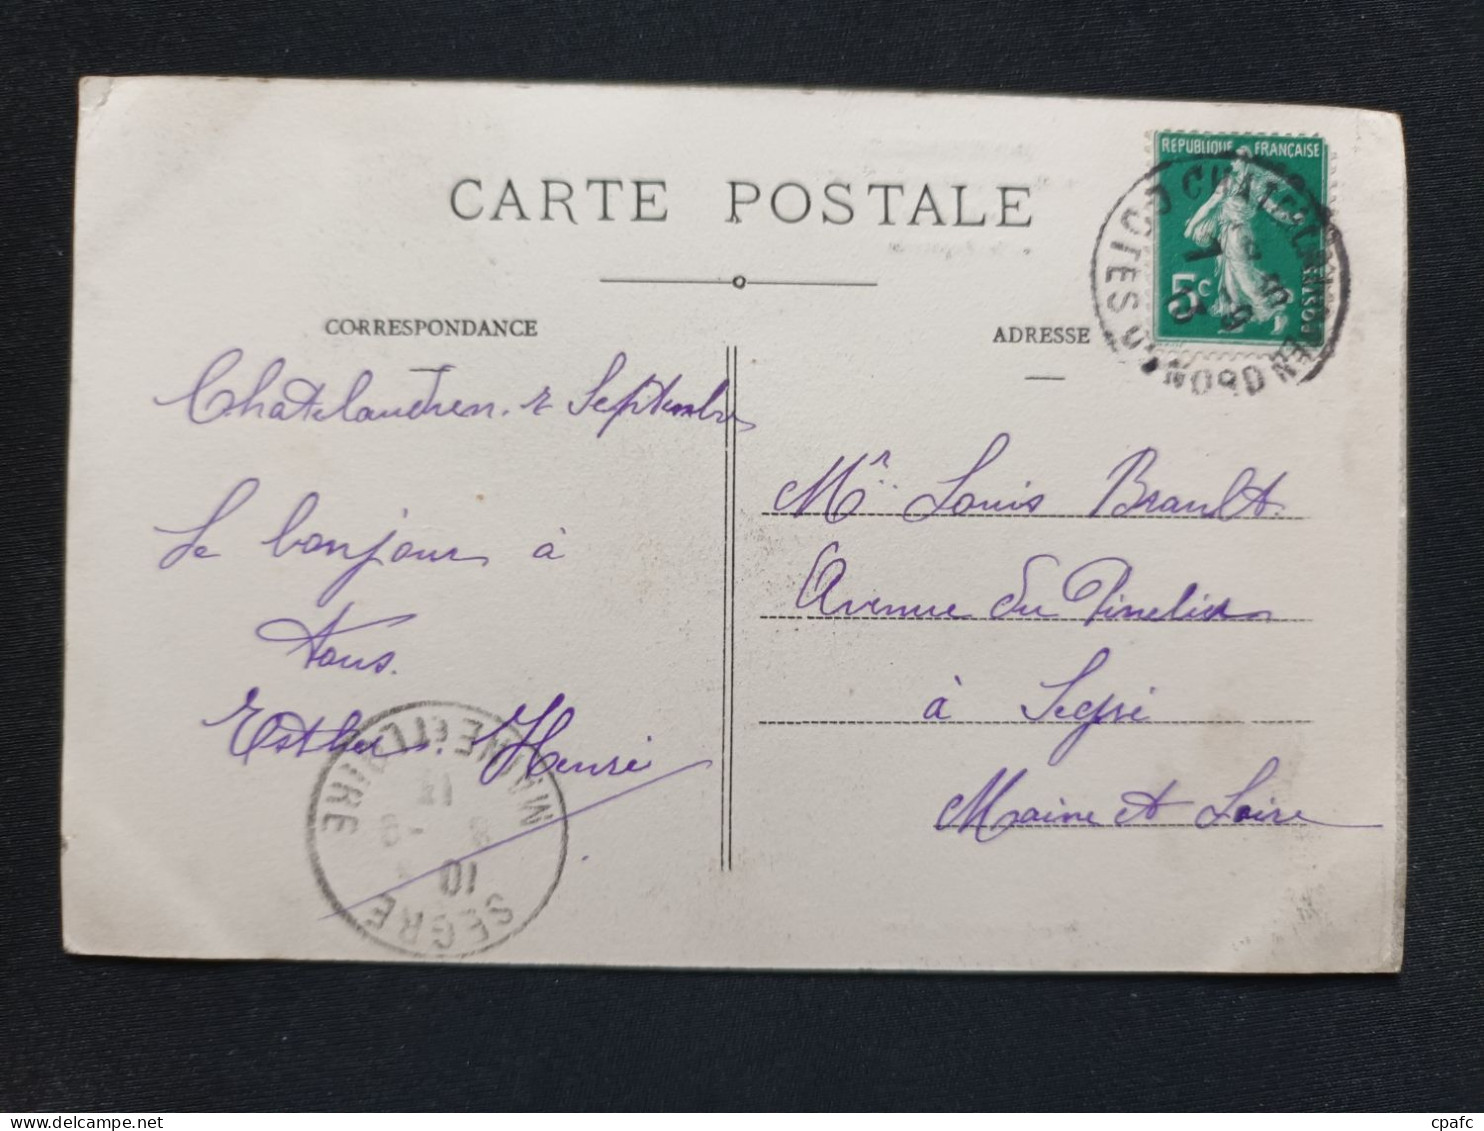 CARTE POSTALE
CORRESPONDANCE
Chatelaudren. 2 Septembre
Le bonjour à
tous.
Esther. Henri
ADRESSE
Mr. Louis Brault.
Avenue du Pinelier
à Segré
Maine et Loire
REPUBLIQUE FRANÇAISE
5c
POSTES
CHATELAUDREN
COTES DU NORD
MAINE ET LOIRE
10
SEGRE
delcampe.net
cpafc